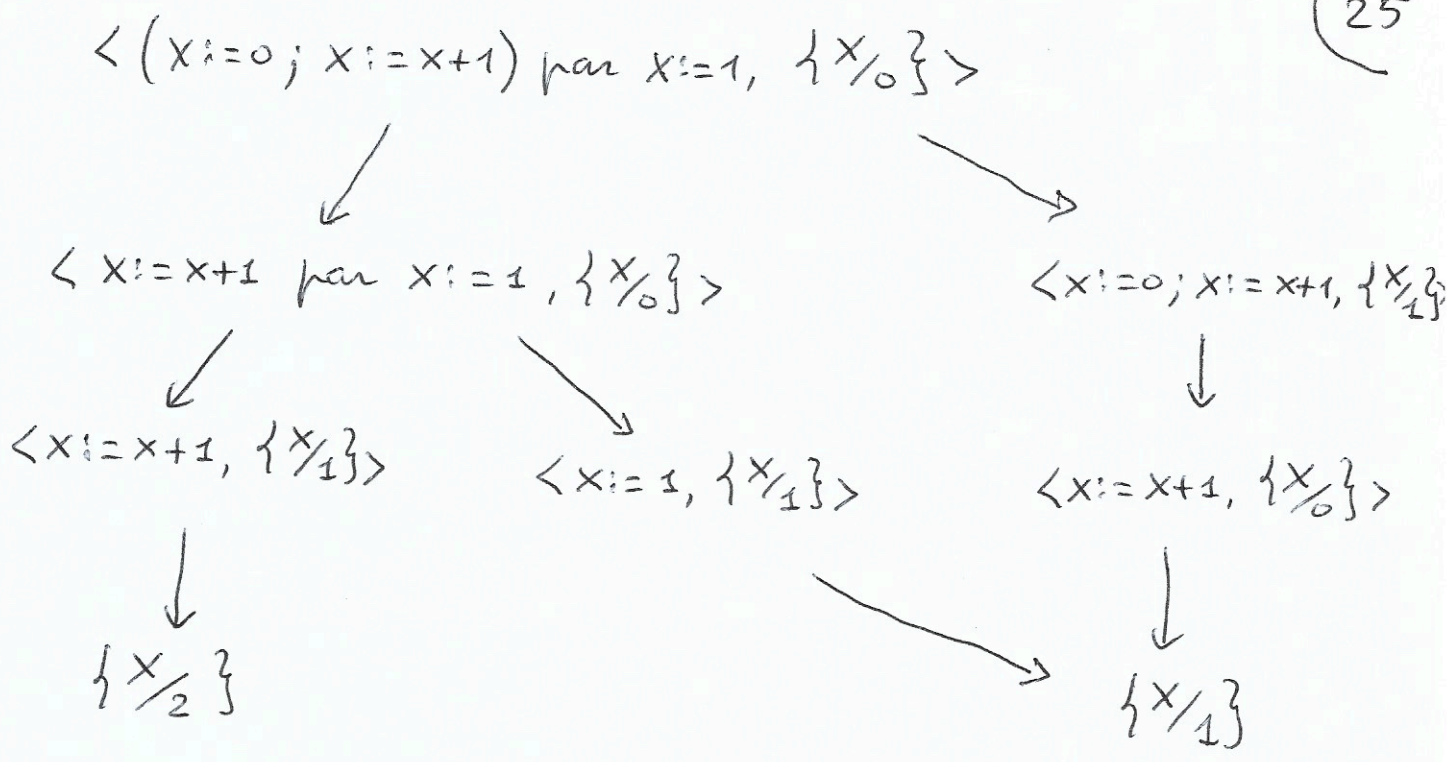 25
<(x:=0; x:=x+1) par x:=1, {x/0}>
<x:=x+1 par x:=1, {x/0}>
<x:=0; x:=x+1, {x/1}>
<x:=x+1, {x/1}>
<x:=1, {x/1}>
<x:=x+1, {x/0}>
{x/2}
{x/1}